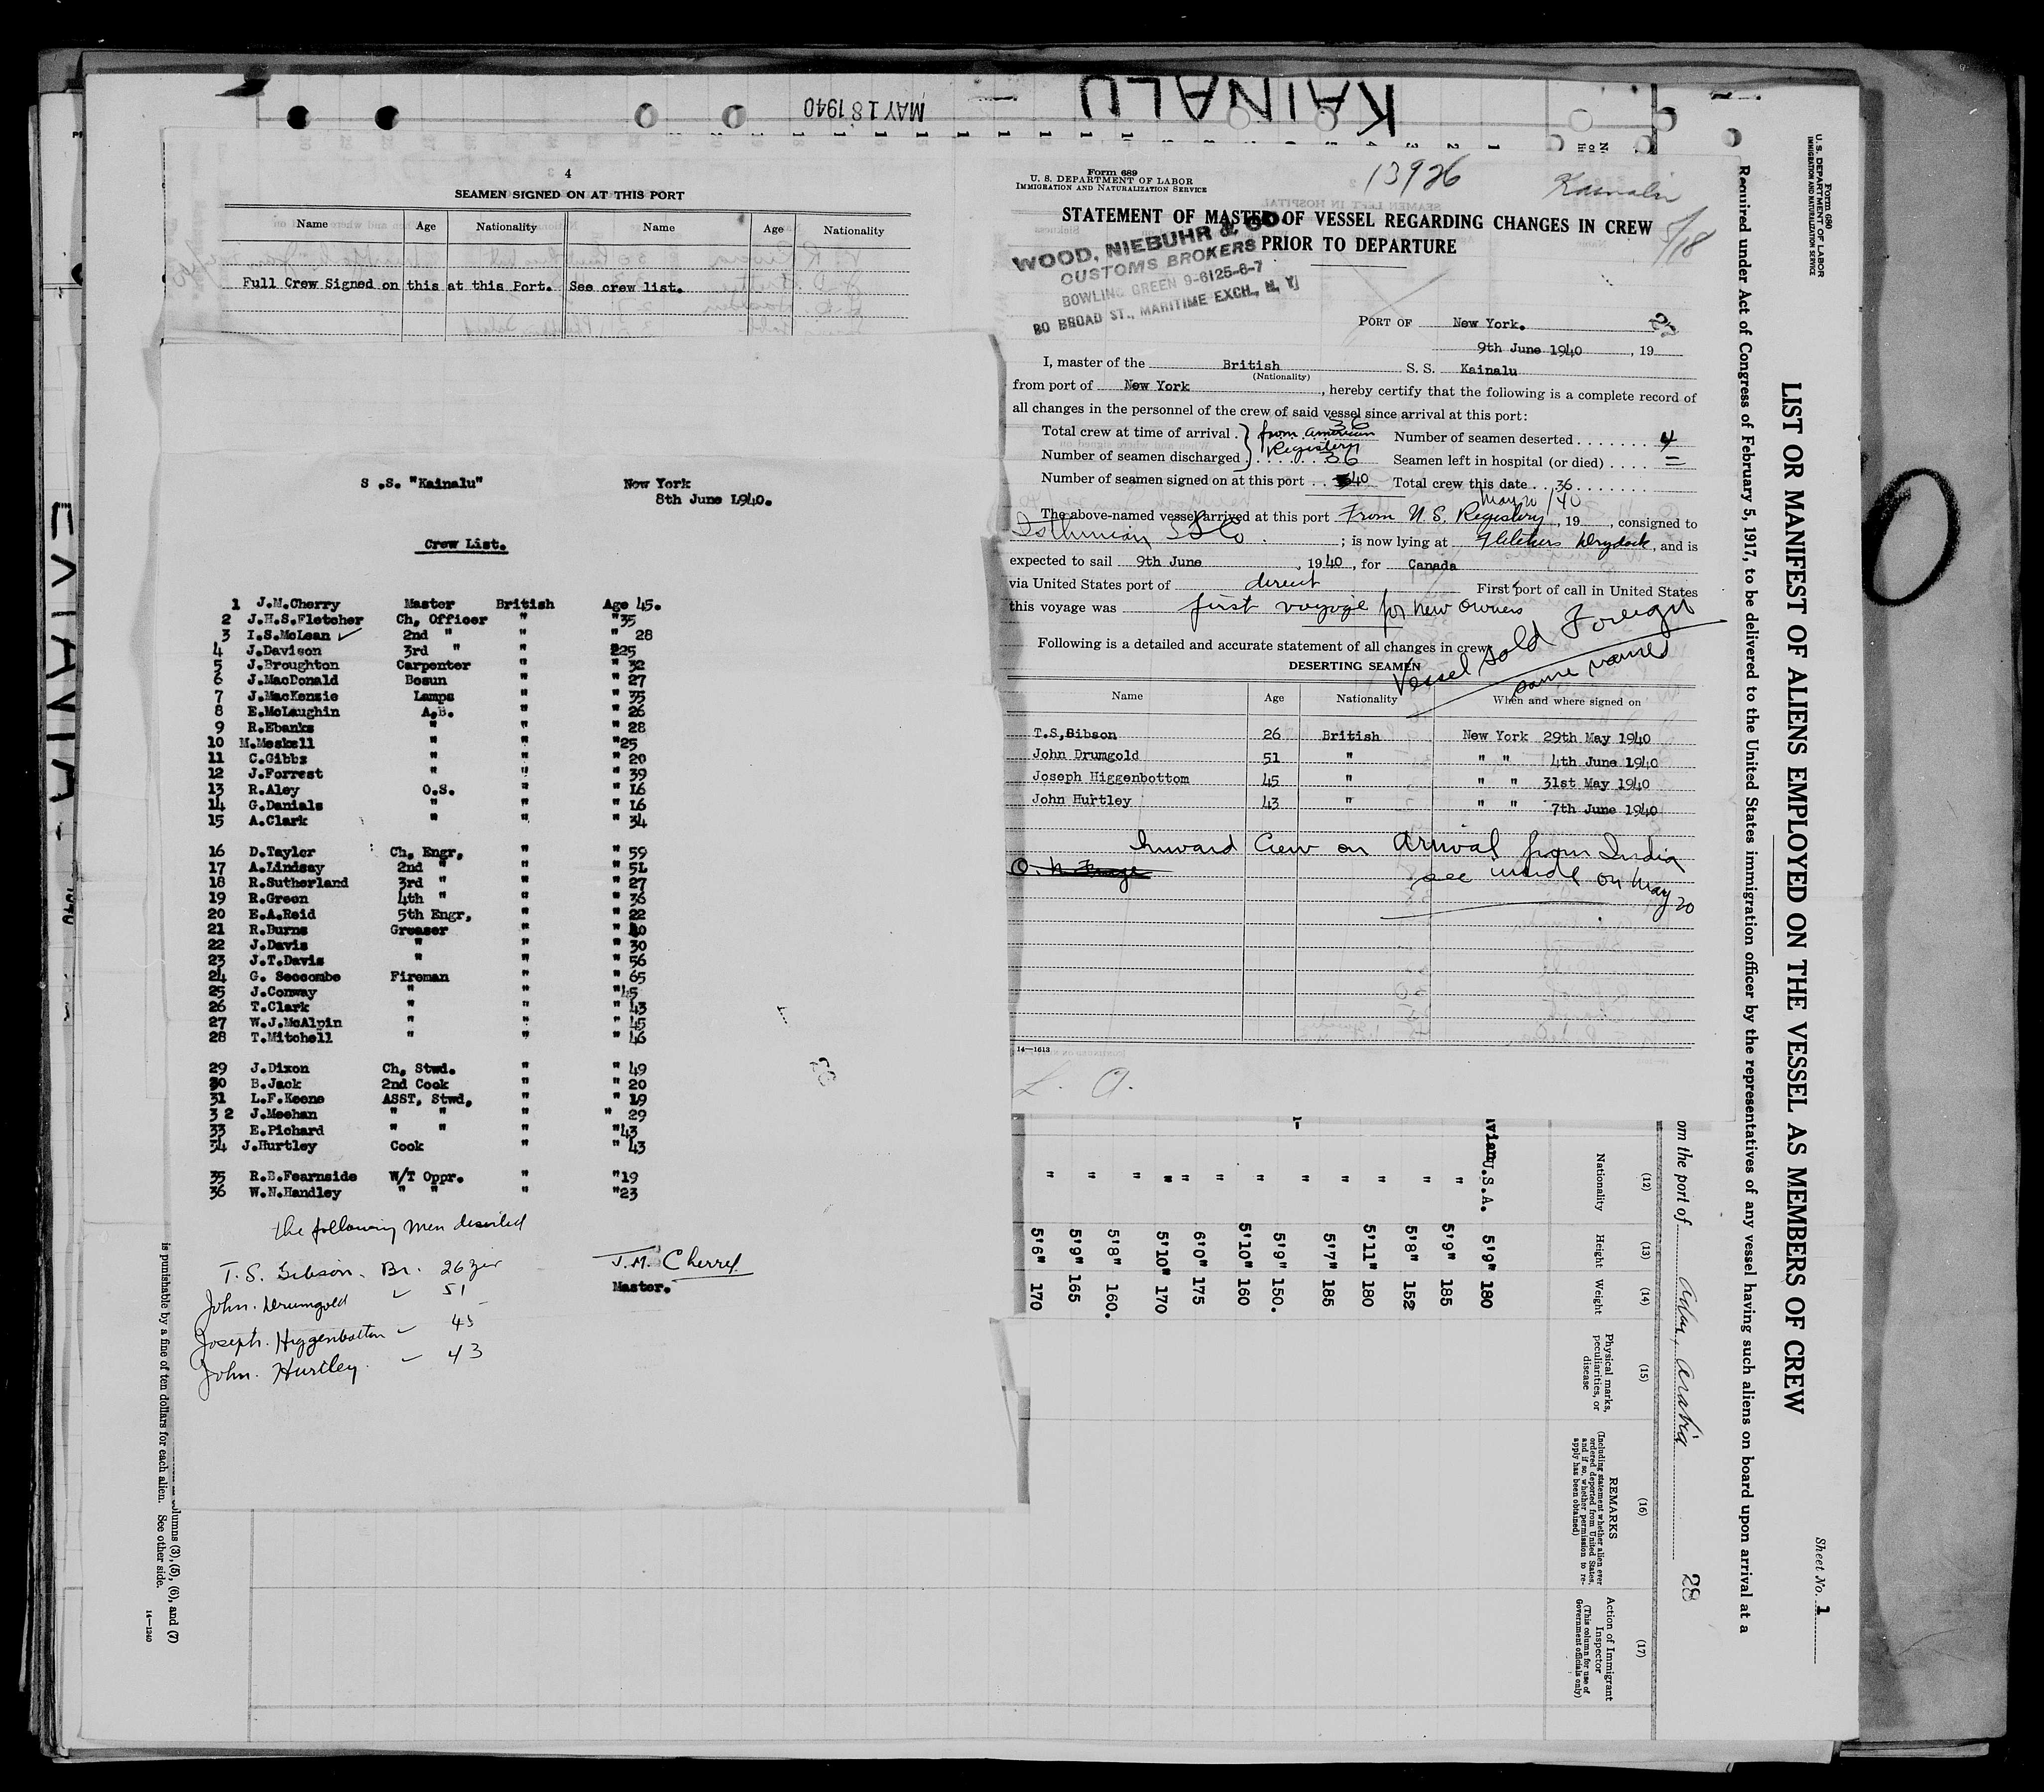 KAINALU
MAY 18 1940
4
SEAMEN SIGNED ON AT THIS PORT
Name Age Nationality Name Age Nationality
Full Crew Signed on this at this Port. See crew list.
S .S. "Kainalu" New York
8th June 1940.
Crew List.
1 J.M.Cherry Master British Age 45.
2 J.H.S.Fletcher Ch, Officer " "35
3 I.S.McLean ✓ 2nd " " " 28
4 J.Davison 3rd " " 225
5 J.Broughton Carpenter " " 32
6 J.MacDonald Bosun " " 27
7 J.MacKenzie Lamps " " 35
8 E.McLaughin A.B. " " 26
9 R.Ebanks " " " 28
10 M.Meskell " " "25
11 C.Gibbs " " " 20
12 J.Forrest " " " 39
13 R.Aley O.S. " " 16
14 G.Danials " " " 16
15 A.Clark " " " 34
16 D.Tayler Ch, Engr, " " 59
17 A.Lindsay 2nd " " " 51
18 R.Sutherland 3rd " " " 27
19 R.Green 4th " " " 36
20 E.A.Reid 5th Engr, " " 22
21 R.Burns Greaser " " 40
22 J.Davis " " " 30
23 J.T.Davis " " " 56
24 G. Seccombe Fireman " " 65
25 J.Conway " " "45
26 T.Clark " " " 43
27 W.J.McAlpin " " " 45
28 T.Mitchell " " " 46
29 J.Dixon Ch, Stwd. " " 49
30 B.Jack 2nd Cook " " 20
31 L.F.Keene ASST, Stwd, " " 19
3 2 J.Meehan " " " " 29
33 E.Pichard " " " "43
34 J.Hurtley Cook " " 43
35 R.B.Fearnside W/T Oppr. " "19
36 W.N.Handley " " " "23
the following men deserted
T.S. Gibson. Br. 26 yrs
John. Drumgold " 51
Joseph. Higgenbottom " 45
John. Hurtley. " 43
J.M. Cherry
Master.
Form 689
U. S. DEPARTMENT OF LABOR
IMMIGRATION AND NATURALIZATION SERVICE
13926
Kainalu
5/18
STATEMENT OF MASTER OF VESSEL REGARDING CHANGES IN CREW
PRIOR TO DEPARTURE
WOOD, NIEBUHR & CO
CUSTOMS BROKERS
BOWLING GREEN 9-6125-6-7
80 BROAD ST., MARITIME EXCH., N. Y.
PORT OF New York.
9th June 1940 , 19
I, master of the British S. S. Kainalu
(Nationality)
from port of New York , hereby certify that the following is a complete record of
all changes in the personnel of the crew of said vessel since arrival at this port:
Total crew at time of arrival . from American Registery 36 Number of seamen deserted . . . . . . . . 4
Number of seamen discharged . . . . . . 36 Seamen left in hospital (or died) . . . . =
Number of seamen signed on at this port . . 40 Total crew this date . . 36
The above-named vessel arrived at this port From U.S. Registery May 20/40 , 19 , consigned to
Isthmian SS Co ; is now lying at Fletchers Drydock , and is
expected to sail 9th June , 1940 , for Canada
via United States port of direct First port of call in United States
this voyage was first voyage for new owners
Following is a detailed and accurate statement of all changes in crew:
Vessel sold Foreign
same named
DESERTING SEAMEN
Name Age Nationality When and where signed on
T.S,Gibson 26 British New York 29th May 1940
John Drumgold 51 " " " 4th June 1940
Joseph Higgenbottom 45 " " " 31st May 1940
John Hurtley 43 " " " 7th June 1940
Inward Crew on Arrival from India
see inside on May 20
14—1613
L. A.
Form 680
U. S. DEPARTMENT OF LABOR
IMMIGRATION AND NATURALIZATION SERVICE
Sheet No. 1
LIST OR MANIFEST OF ALIENS EMPLOYED ON THE VESSEL AS MEMBERS OF CREW
Required under Act of Congress of February 5, 1917, to be delivered to the United States immigration officer by the representatives of any vessel having such aliens on board upon arrival at a
om the port of Aden, Arabia
28
(12) (13) (14) (15) (16) (17)
Nationality Height Weight Physical marks, peculiarities, or disease
REMARKS
(Including statement whether alien ever ordered deported from United States, and if so, whether permission to reapply has been obtained)
Action of Immigrant Inspector
(This column for use of Government officials only)
U.S.A. 5'9" 180
" 5'9" 185
" 5'8" 152
" 5'11" 180
" 5'7" 185
" 5'9" 150.
" 5'10" 160
" 6'0" 175
" 5'10" 170
" 5'8" 160.
" 5'9" 165
" 5'6" 170
olumns (3), (5), (6), and (7)
is punishable by a fine of ten dollars for each alien. See other side.
14—1240